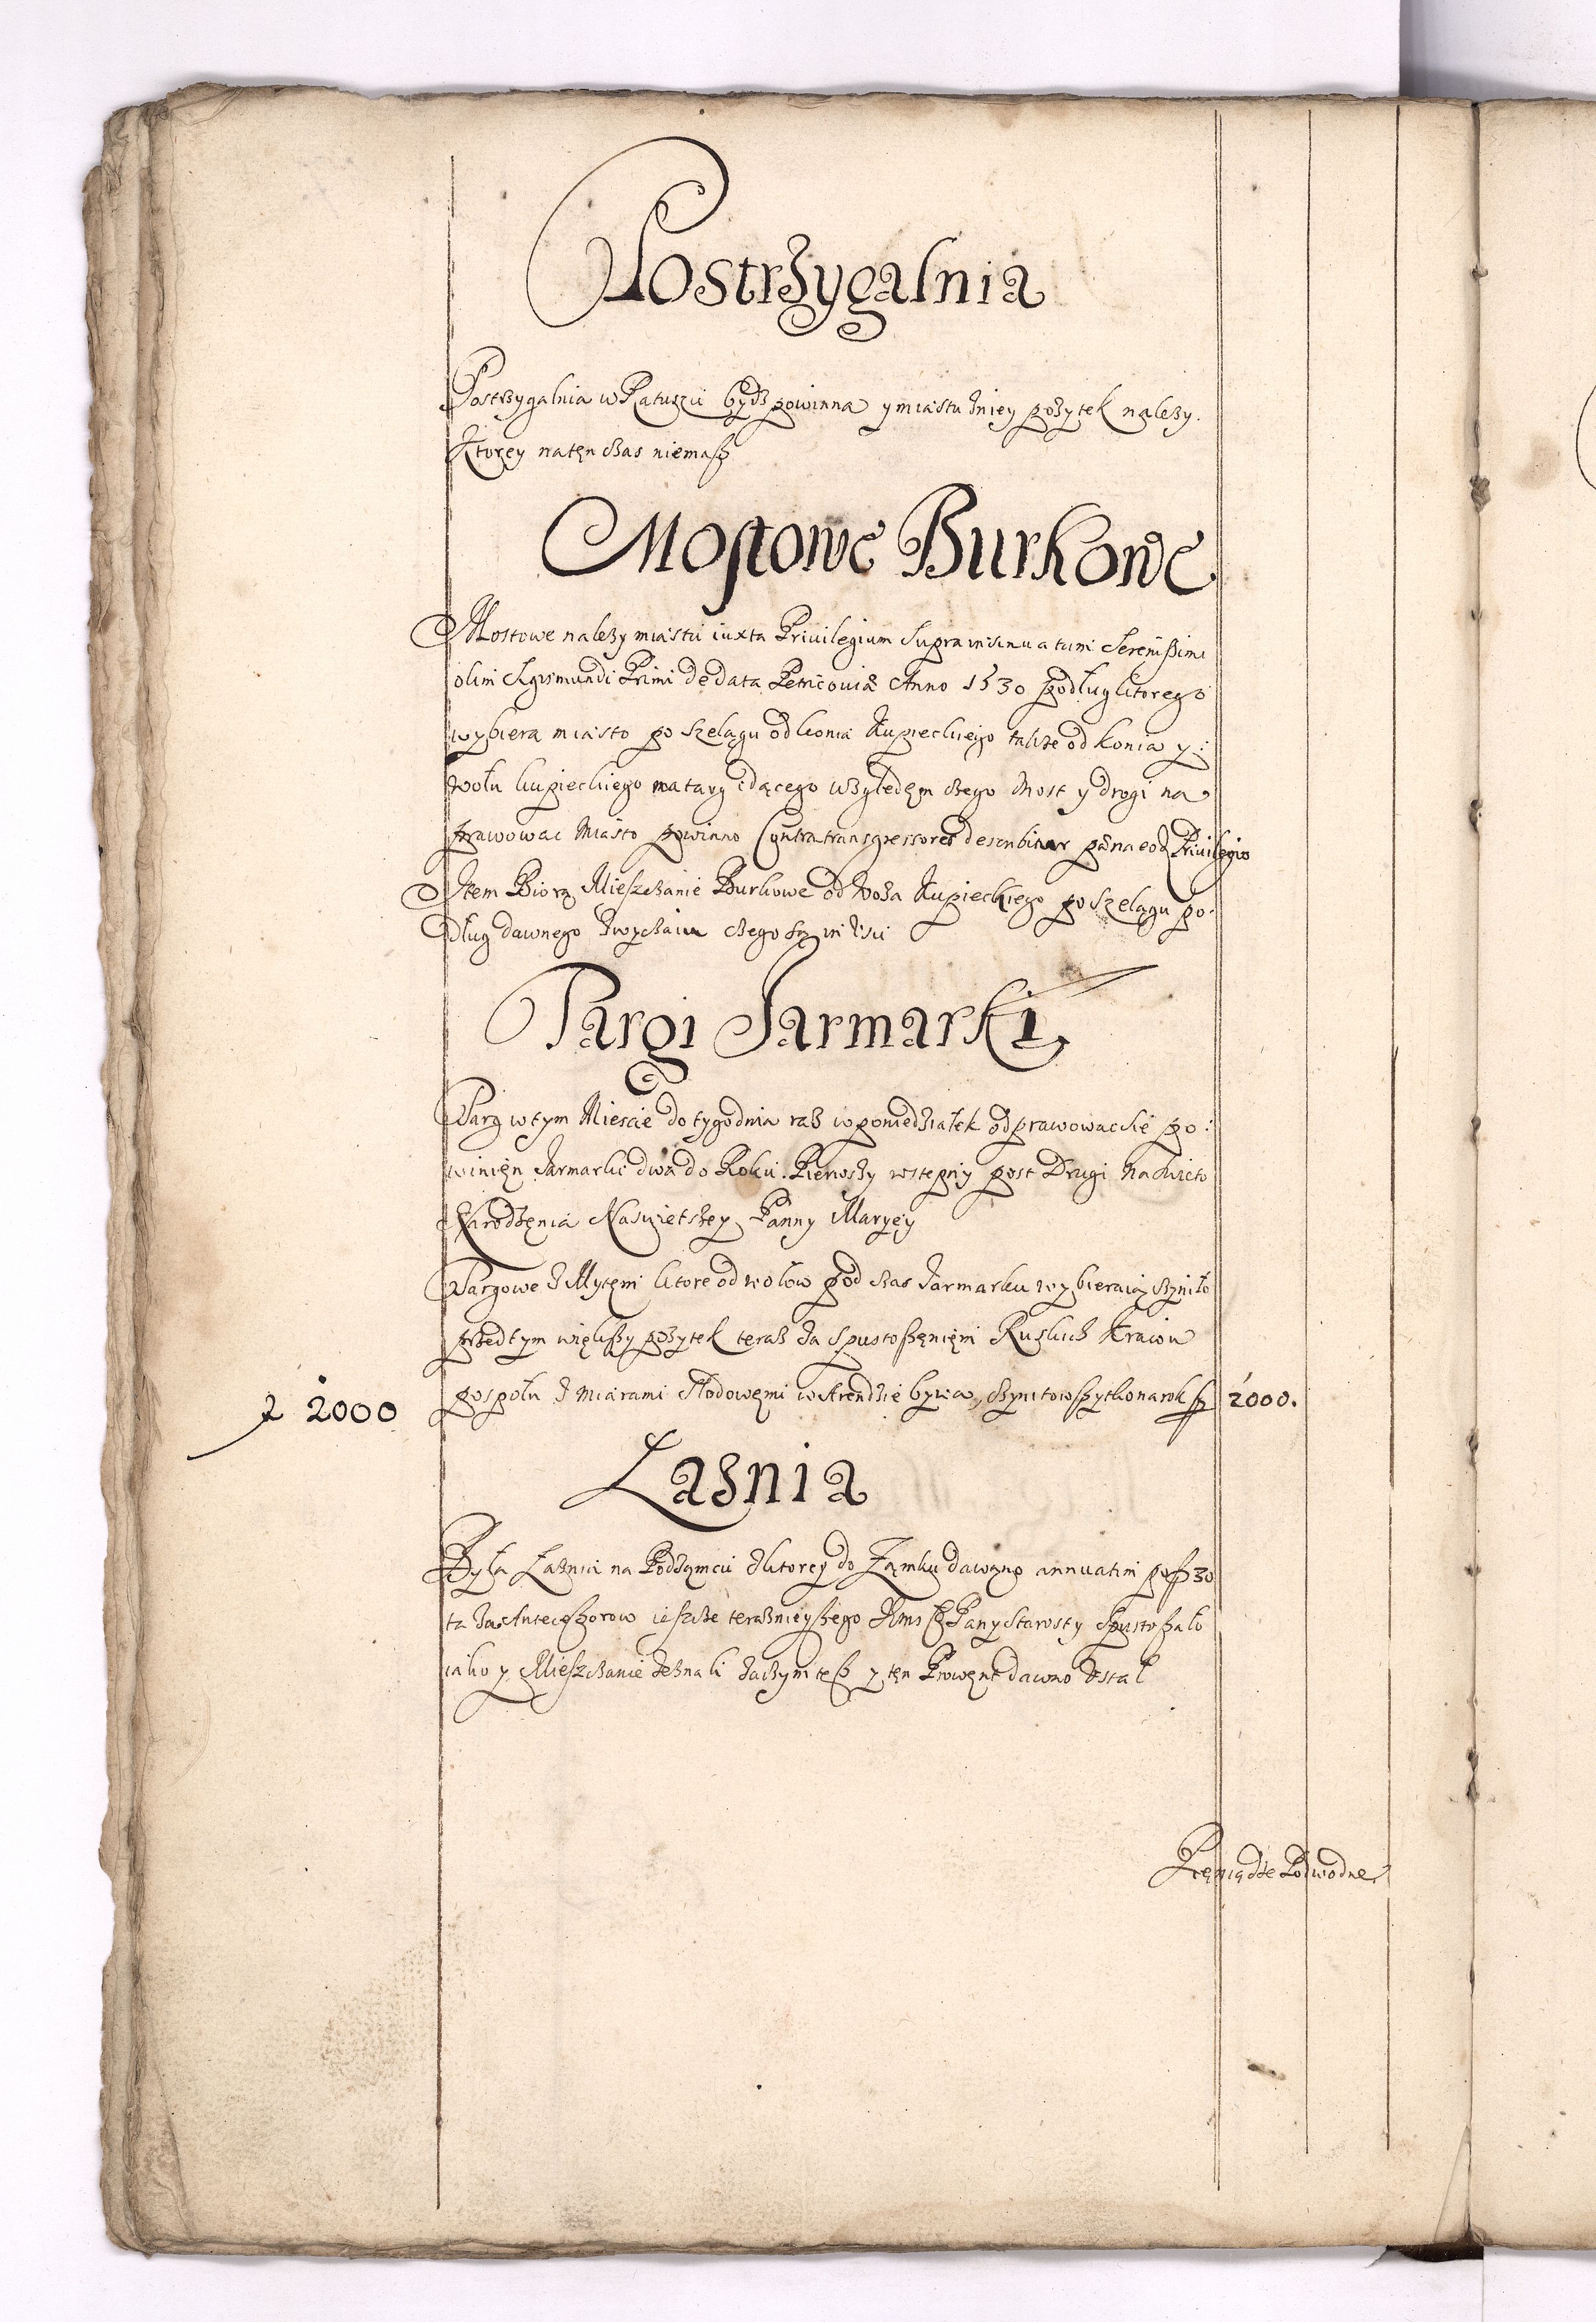 Postrzygalnia
Postrzygalnia w Ratuszu bydz powinna y miastu zniey pożytek nalezy.
Ktorey natęn czas niemasz
Mostowe Burkowe
Mostowe nalezy miastu iuxta Privilegium supra insinuatum Serenissimi
olim Sigismundi Primi de data Petricoviæ Anno 1530 podług ktorego
wybiera miasto po szelągu od konia kupieckiego także od konia y:
wołu kupieckiego na targ idącego względęm czego most y drogi na
prawowac Miasto powinno Contra transgressores describitur pæna eod Privilegio
Item Biorą Mieszczanie Burkowe od Woza Kupieckiego po szelągu po:
dług dawnego zwyczaiu czego są in usu
Targi Jarmarki
Targ wtym Miescie do tygodnia raz w poniedziałek odprawowac sie po:
winięn Jarmarki dwa do Roku. Pierwszy wstępny post Drugi na swieto
Narodzęnia Naswietszey Panny Maryey
Targowe z Mytęm ktore od wołow pod czas Jarmarku wybieraią czyniło
przedtym większy pożytek teraz za spustoszęnięm Ruskich Kraiow
pospołu z miarami słodowęmi w Arendzie bywa, czyni to wszytko na rok fl 2000.
fl 2000
Łaznia
Była Łaznia na Podzamcu z ktorey do Zamku dawano annuatim po fl 30
ta za Antecessorow ieszcze teraznieyszego Jms Pana Starosty spustoszało
iako y Mieszczanie zeznali zaczym tesz y tęn Prowęnt dawno ustał
Pięniądze Podwodne